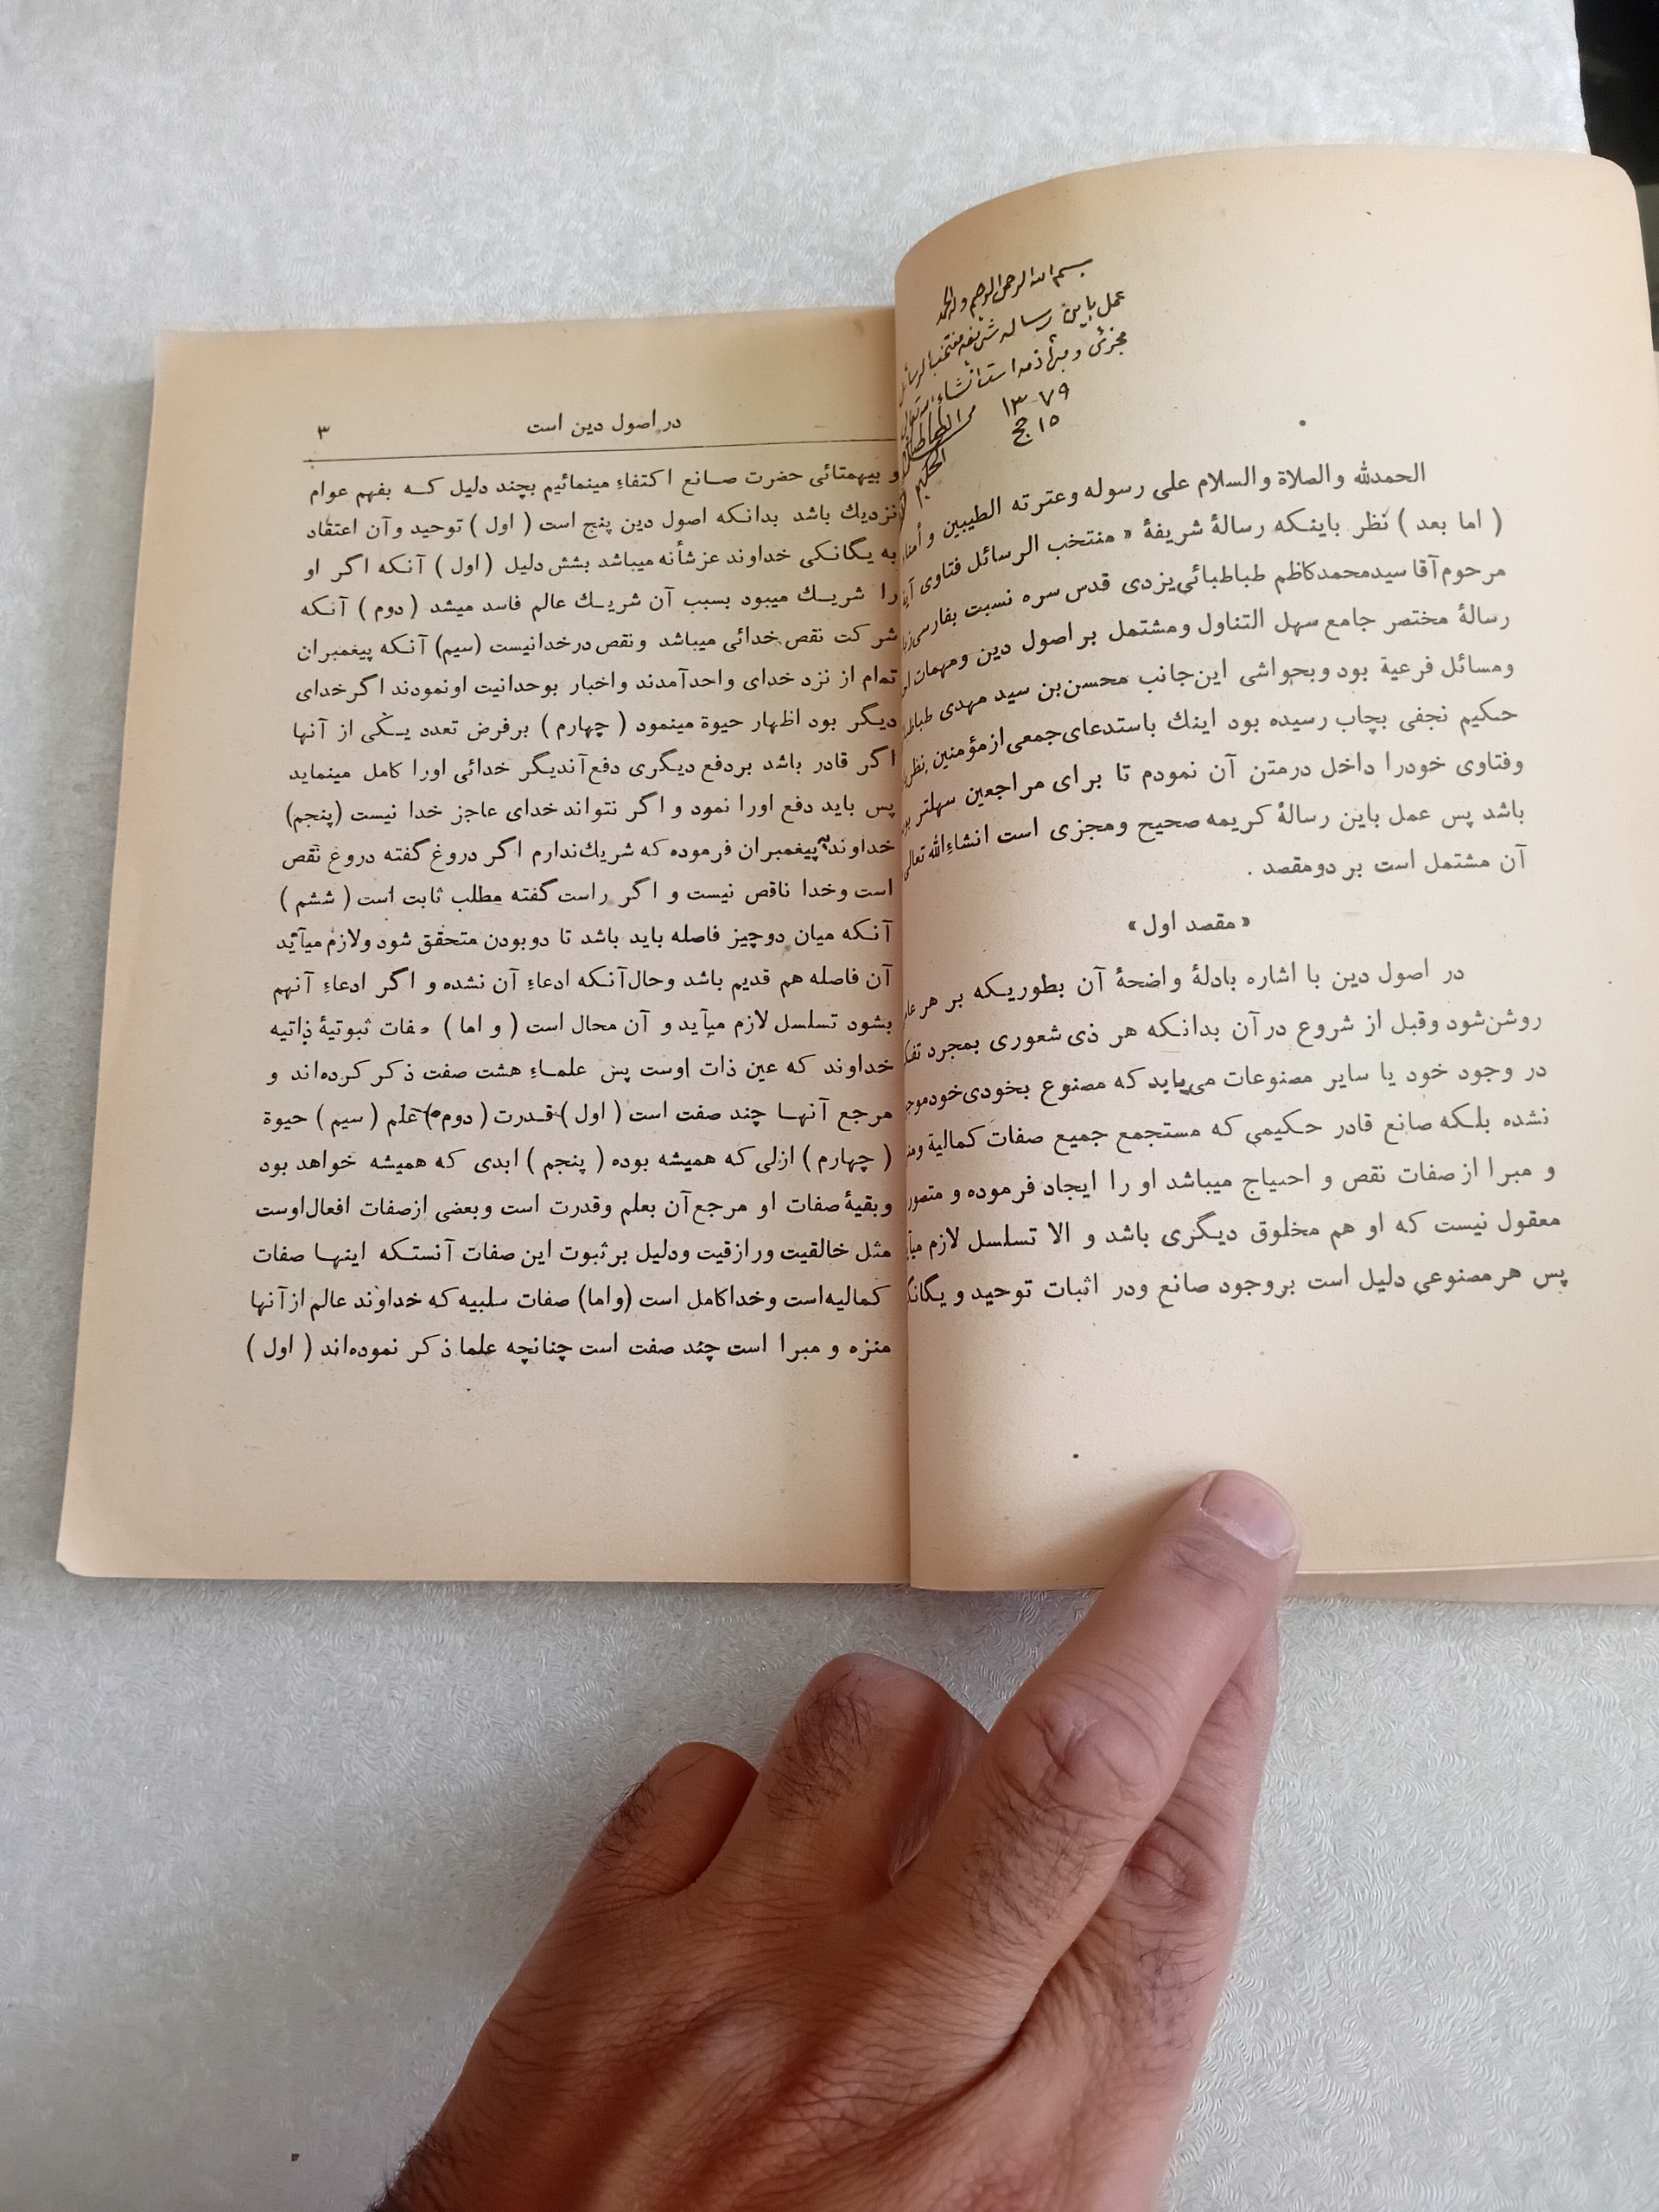 بسم الله الرحمن الرحیم وله الحمد
عمل باین رساله شریفه منتخب الرسائل
مجزی و مبرئ ذمه است انشاءالله تعالی
۱۳۷۹
۱۵ ج
محسن الطباطبائی
الحکیم
الحمدلله والصلاة والسلام علی رسوله وعترته الطیبین و أمناء
( اما بعد ) نظر باینکه رسالهٔ شریفهٔ « منتخب الرسائل فتاوی
مرحوم آقا سید محمد کاظم طباطبائی یزدی قدس سره نسبت بفارسی
رسالهٔ مختصر جامع سهل التناول ومشتمل بر اصول دین ومهمات
ومسائل فرعیة بود وبحواشی این‌جانب محسن بن سید مهدی
حکیم نجفی بچاب رسیده بود اینك باستدعای جمعی از مؤمنین
وفتاوی خودرا داخل درمتن آن نمودم تا برای مراجعین سهلتر
باشد پس عمل باین رسالهٔ کریمه صحیح ومجزی است انشاءالله تعالی
آن مشتمل است بر دومقصد .
« مقصد اول »
در اصول دین با اشاره بادلهٔ واضحهٔ آن بطوریکه بر هر
روشن شود وقبل از شروع در آن بدانکه هر ذی شعوری بمجرد
در وجود خود یا سایر مصنوعات می‌یابد که مصنوع بخودی خود
نشده بلکه صانع قادر حکیمی که مستجمع جمیع صفات کمالیة
و مبرا از صفات نقص و احتیاج میباشد او را ایجاد فرموده و متصور
معقول نیست که او هم مخلوق دیگری باشد و الا تسلسل لازم
پس هر مصنوعی دلیل است بروجود صانع ودر اثبات توحید و
در اصول دین است ۳
و بیهمتائی حضرت صانع اکتفاء مینمائیم بچند دلیل که بفهم عوام
نزدیك باشد بدانکه اصول دین پنج است ( اول ) توحید وآن اعتقاد
به یگانکی خداوند عزشأنه میباشد بشش دلیل ( اول ) آنکه اگر او
را شریك میبود بسبب آن شریك عالم فاسد میشد ( دوم ) آنکه
شرکت نقص خدائی میباشد ونقص درخدانیست (سیم) آنکه پیغمبران
تمام از نزد خدای واحدآمدند واخبار بوحدانیت اونمودند اگرخدای
دیگر بود اظهار حیوة مینمود ( چهارم ) برفرض تعدد یکی از آنها
اگر قادر باشد بردفع دیگری دفع آندیگر خدائی اورا کامل مینماید
پس باید دفع اورا نمود و اگر نتواند خدای عاجز خدا نیست (پنجم)
خداوند به پیغمبران فرموده که شریك‌ندارم اگر دروغ گفته دروغ نقص
است وخدا ناقص نیست و اگر راست گفته مطلب ثابت است ( ششم )
آنکه میان دوچیز فاصله باید باشد تا دوبودن متحقق شود ولازم میآید
آن فاصله هم قدیم باشد وحال‌آنکه ادعاء آن نشده و اگر ادعاء آنهم
بشود تسلسل لازم میآید و آن محال است ( و اما ) صفات ثبوتیهٔ ذاتیه
خداوند که عین ذات اوست پس علماء هشت صفت ذکر کرده‌اند و
مرجع آنها چند صفت است ( اول ) قدرت ( دوم ) علم ( سیم ) حیوة
( چهارم ) ازلی که همیشه بوده ( پنجم ) ابدی که همیشه خواهد بود
وبقیهٔ صفات او مرجع آن بعلم وقدرت است وبعضی ازصفات افعال‌اوست
مثل خالقیت ورازقیت ودلیل برثبوت این صفات آنستکه اینها صفات
کمالیه‌است وخداکامل است (واما) صفات سلبیه که خداوند عالم ازآنها
منزه و مبرا است چند صفت است چنانچه علما ذکر نموده‌اند ( اول )